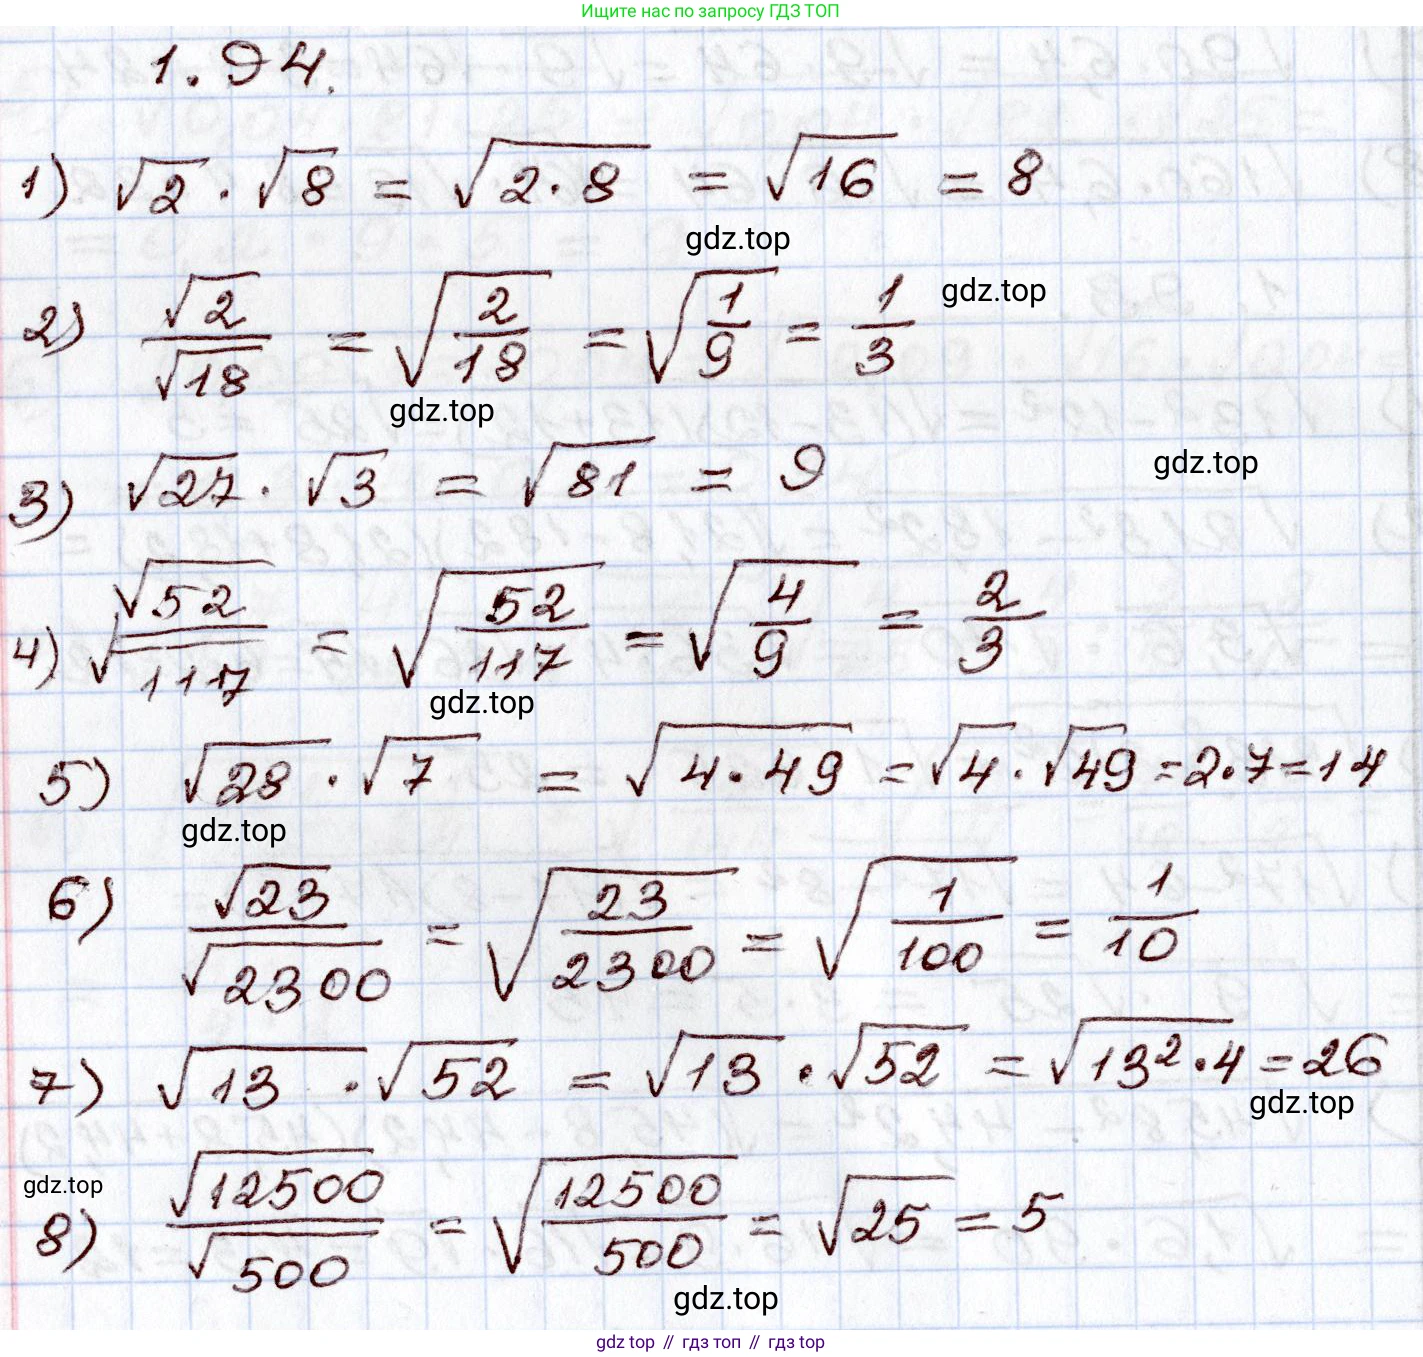 Ищите нас по запросу ГДЗ ТОП
1.94.
1) √2 · √8 = √(2·8) = √16 = 8
gdz.top
2) √2/√18 = √(2/18) = √(1/9) = 1/3
gdz.top
gdz.top
3) √27 · √3 = √81 = 9
gdz.top
4) √52/√117 = √(52/117) = √(4/9) = 2/3
gdz.top
5) √28 · √7 = √(4·49) = √4 · √49 = 2·7 = 14
gdz.top
6) √23/√2300 = √(23/2300) = √(1/100) = 1/10
7) √13 · √52 = √13 · √52 = √(13²·4) = 26
gdz.top
gdz.top
8) √12500/√500 = √(12500/500) = √25 = 5
gdz.top
gdz top // гдз топ // gdz top